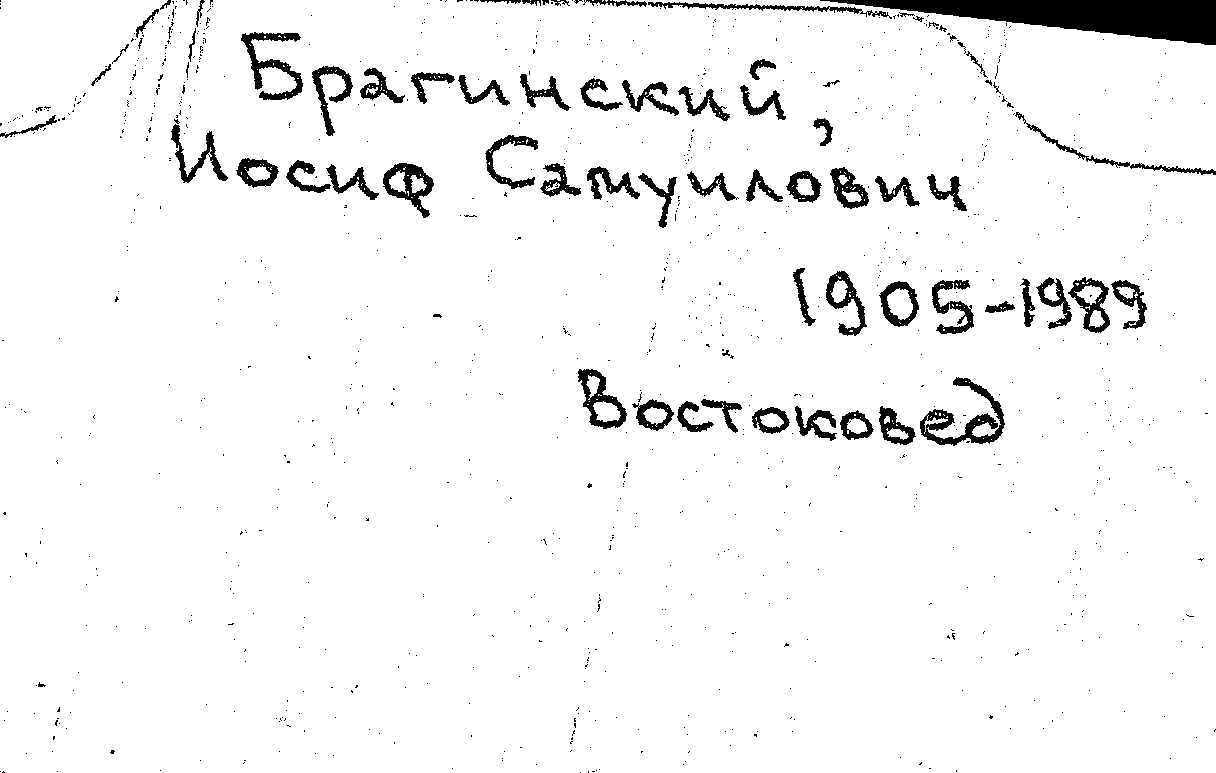 Брагинский,
Иосиф Самуилович
1905-1989
Востоковед